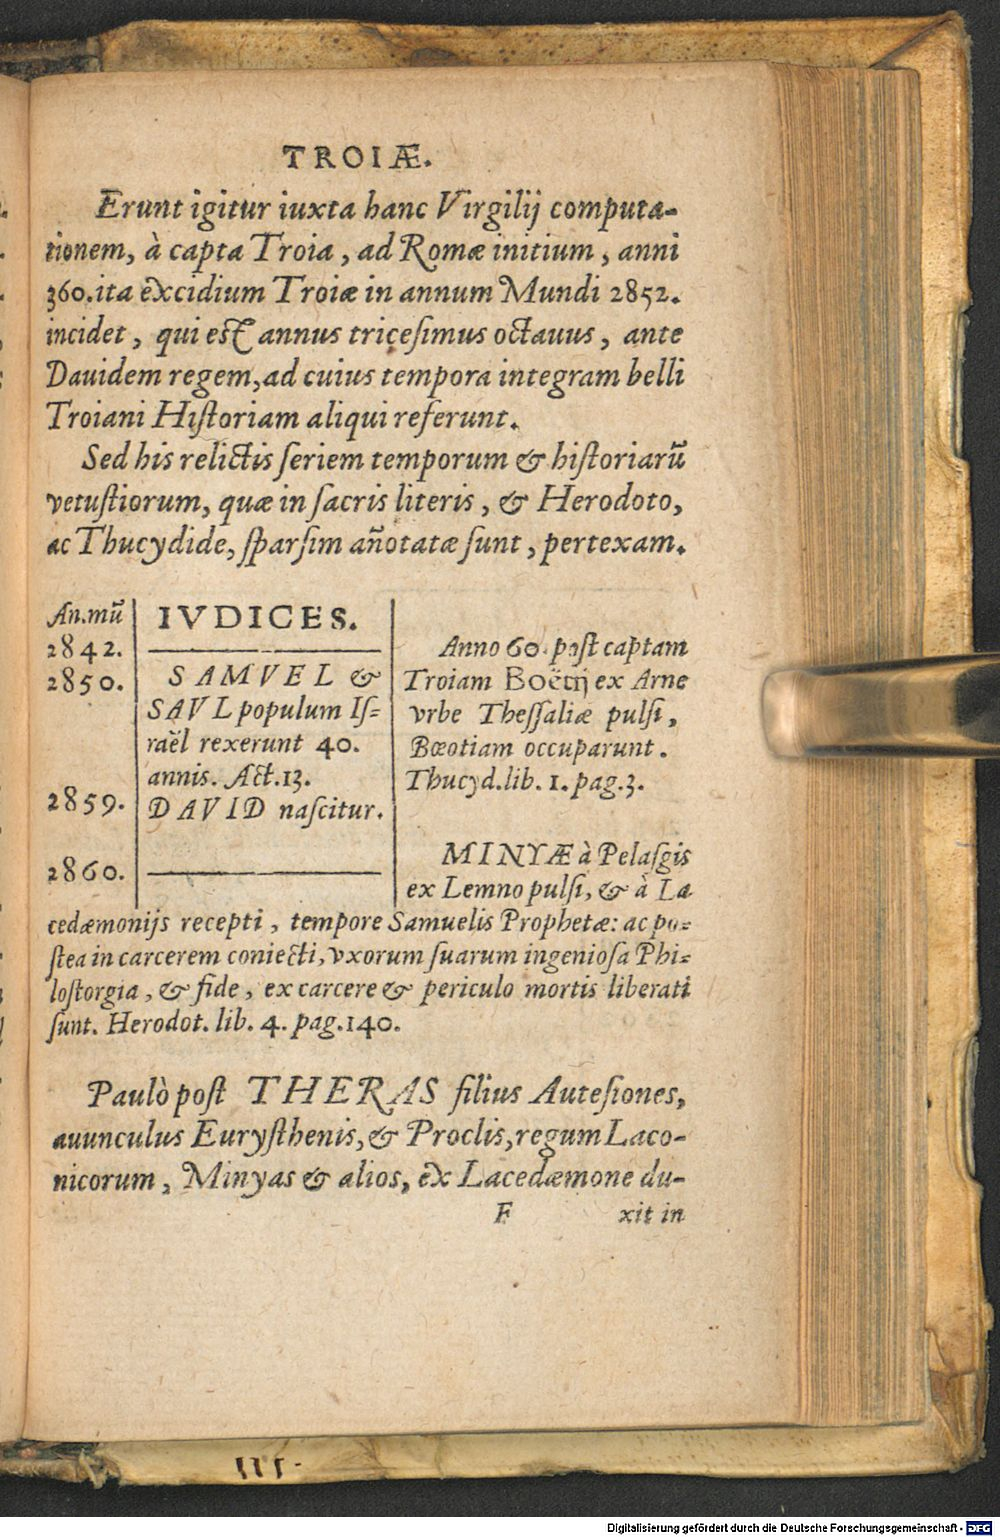 TROIÆ.
Erunt igitur iuxta hanc Virgilij computa-
tionem, à capta Troia, ad Romæ initium, anni
360. ita excidium Troiæ in annum Mundi 2852.
incidet, qui est annus tricesimus octauus, ante
Dauidem regem, ad cuius tempora integram belli
Troiani Historiam aliqui referunt.
Sed his relictis seriem temporum & historiarũ
vetustiorum, quæ in sacris literis, & Herodoto,
ac Thucydide, sparsim añotatæ sunt, pertexam.
An.mũ
2842.
2850.
2859.
2860.
IVDICES.
SAMVEL &
SAVL populum Is-
raël rexerunt 40.
annis. Act.13.
DAVID nascitur.
Anno 60. post captam
Troiam Boëtij ex Arne
vrbe Thessaliæ pulsi,
Bœotiam occuparunt.
Thucyd. lib. 1. pag.3.
MINYÆ à Pelasgis
ex Lemno pulsi, & à La
cedæmonijs recepti, tempore Samuelis Prophetæ: ac po-
stea in carcerem coniecti, vxorum suarum ingeniosa Phi-
lostorgia, & fide, ex carcere & periculo mortis liberati
sunt. Herodot. lib. 4. pag.140.
Paulò post THERAS filius Autesiones,
auunculus Eurysthenis, & Proclis, regum Laco-
nicorum, Minyas & alios, ex Lacedæmone du-
F xit in
Digitalisierung gefördert durch die Deutsche Forschungsgemeinschaft - DFG